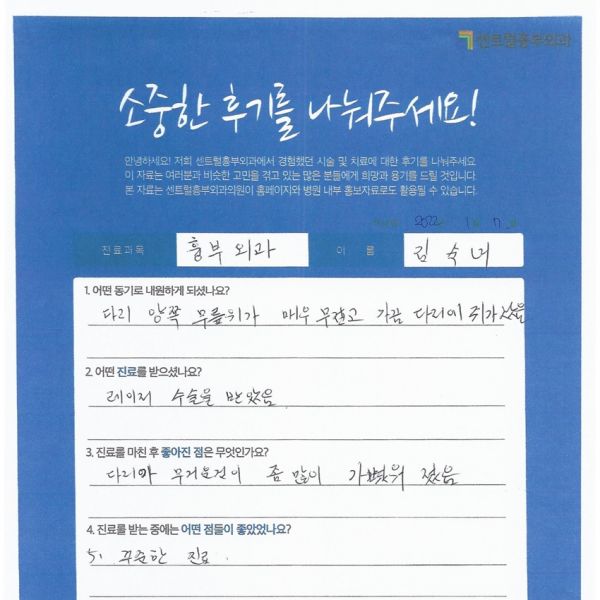 센트럴흉부외과
소중한 후기를 나눠주세요!
안녕하세요! 저희 센트럴흉부외과에서 경험했던 시술 및 치료에 대한 후기를 나눠주세요
이 자료는 여러분과 비슷한 고민을 겪고 있는 많은 분들에게 희망과 용기를 드릴 것입니다.
본 자료는 센트럴흉부외과의원이 홈페이지와 병원 내부 홍보자료로도 활용될 수 있습니다.
2022 1 7
진료과목 흉부외과 이 름 김숙녀
1. 어떤 동기로 내원하게 되셨나요?
다리 양쪽 무릎위가 매우 무겁고 가끔 다리에 쥐가 났음
2. 어떤 진료를 받으셨나요?
레이저 수술을 받았음
3. 진료를 마친 후 좋아진 점은 무엇인가요?
다리가 무거운것이 좀 많이 가벼워 졌음
4. 진료를 받는 중에는 어떤 점들이 좋았었나요?
5. 꾸준한 진료.